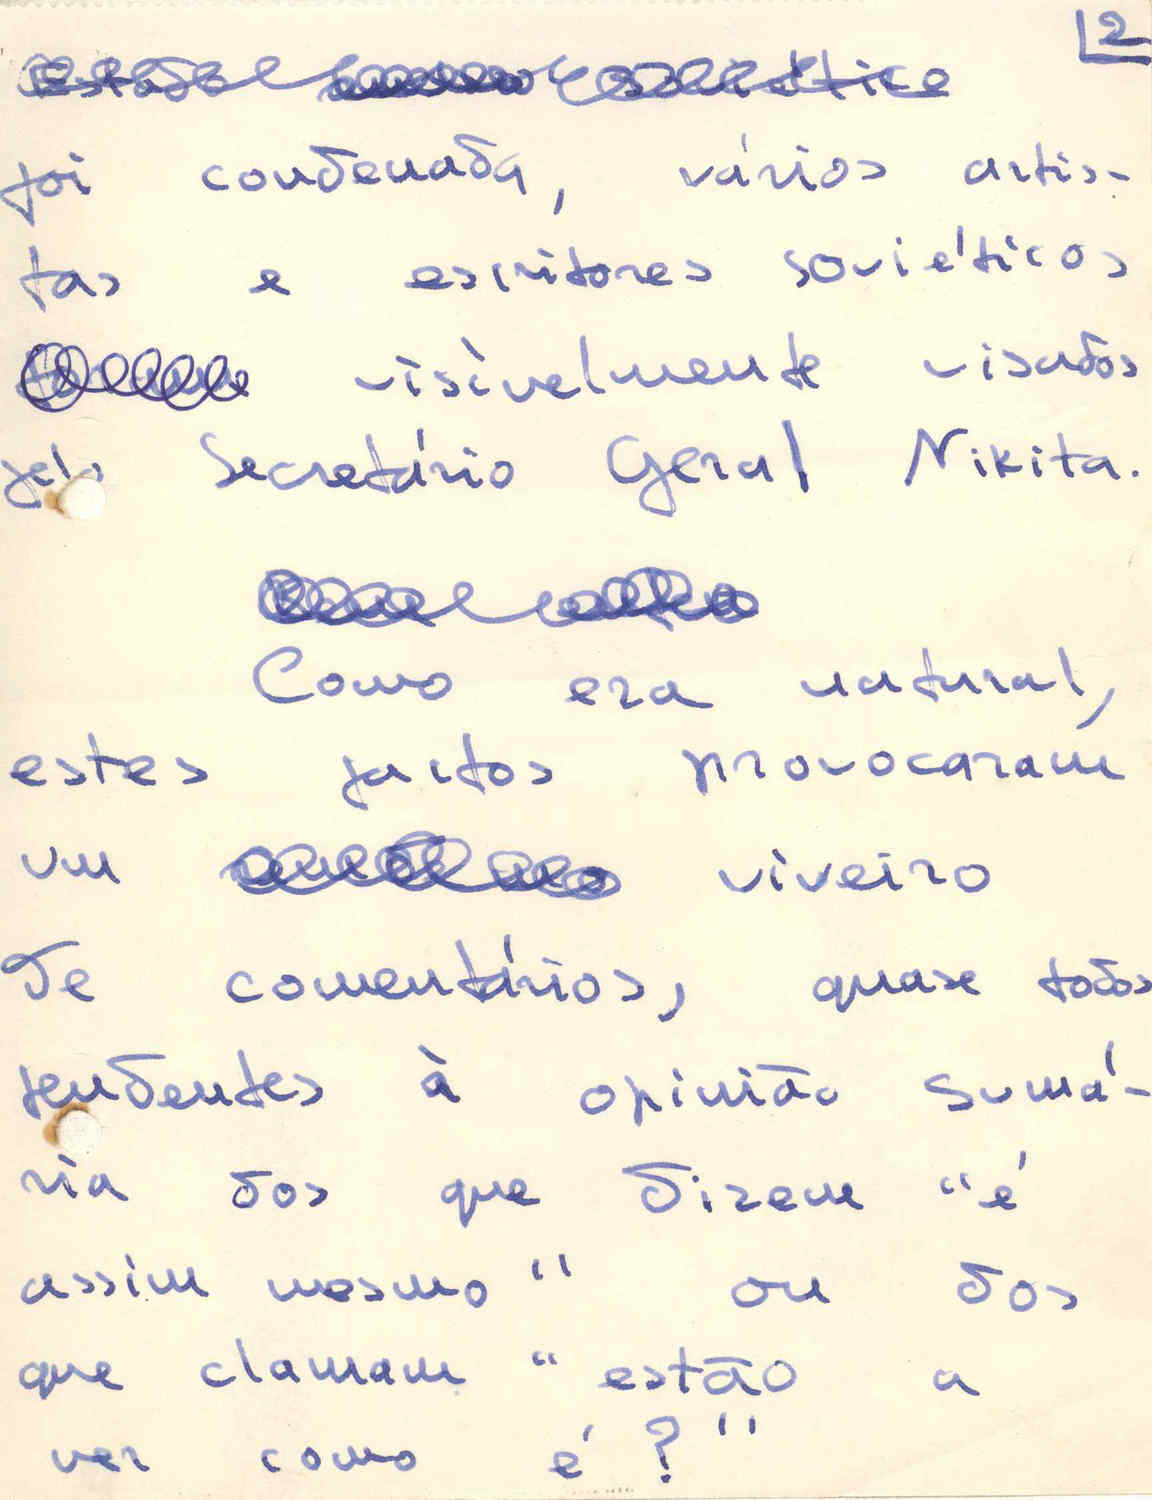 2
foi condenada, vários artis-
tas e escritores soviéticos
visìvelmente visados
pelo Secretário Geral Nikita.
Como era natural,
estes factos provocaram
um viveiro
de comentários, quase todos
tendentes à opinião sumá-
ria dos que dizem "é
assim mesmo" ou dos
que clamam "estão a
ver como é?"